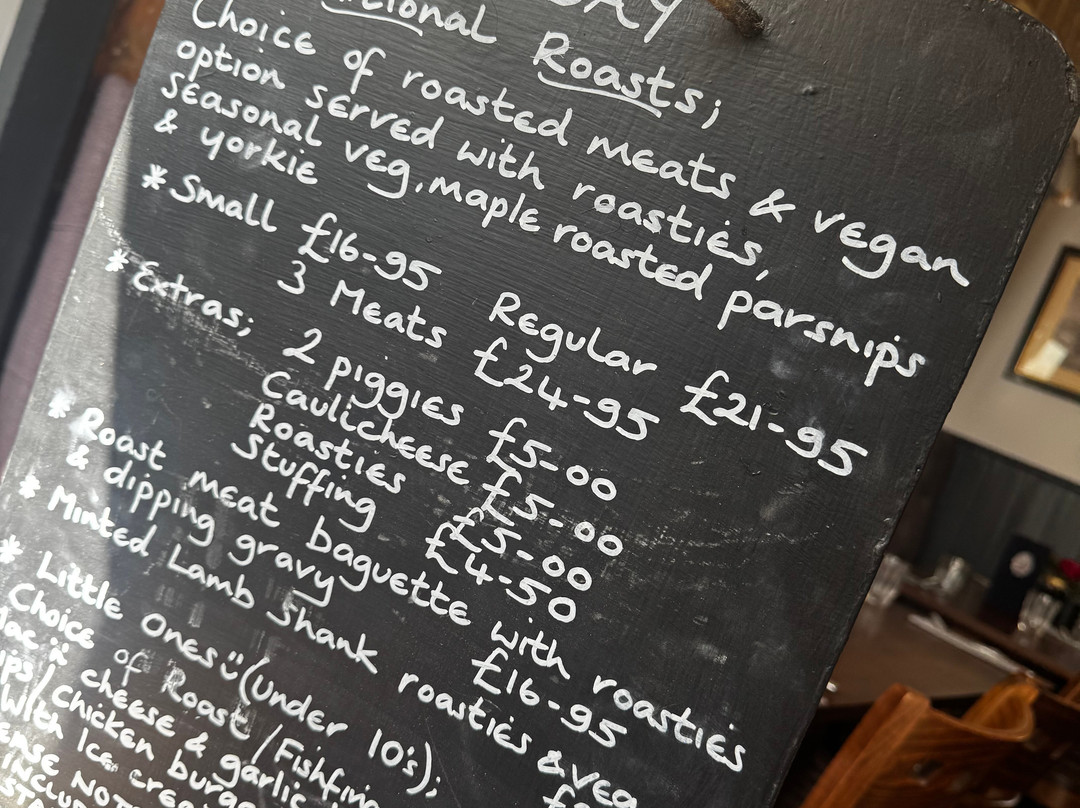 Roasts;
Choice of roasted meats & vegan
option served with roasties,
seasonal veg, maple roasted parsnips
& yorkie
* Small £16-95 Regular £21-95
3 Meats £24-95
* Extras; 2 piggies £5-00
Caulicheese £5-00
Roasties £5-00
Stuffing £4-50
* Roast meat baguette with roasties
& dipping gravy £16-95
* Minted Lamb Shank roasties & veg
* Little Ones (Under 10's);
Choice of Roast / Fishfin
cheese & garlic
/ Chicken burge
With Ice Crea
NOT